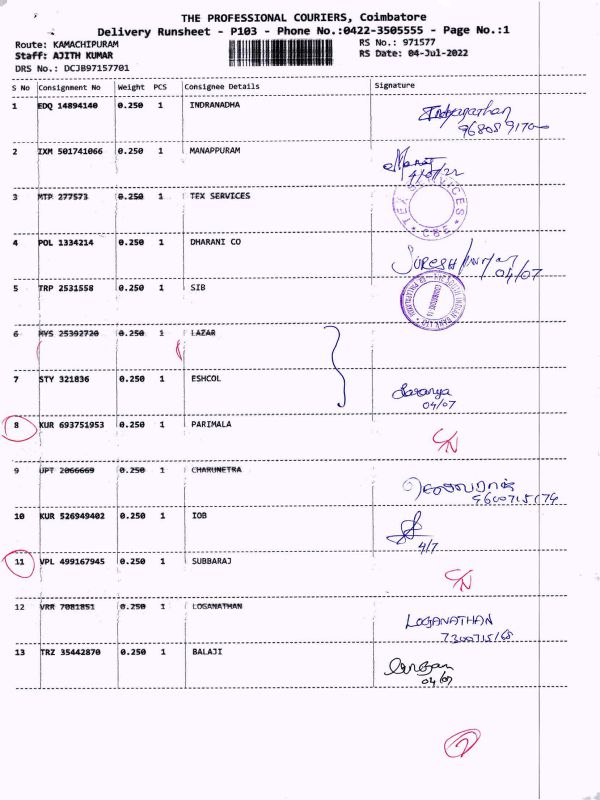 THE PROFESSIONAL COURIERS, Coimbatore
Delivery Runsheet - P103 - Phone No.:0422-3505555 - Page No.:1
Route: KAMACHIPURAM RS No.: 971577
Staff: AJITH KUMAR RS Date: 04-Jul-2022
DRS No.: DCJB97157701
S No Consignment No Weight PCS Consignee Details Signature
1 EDQ 14894140 0.250 1 INDRANADHA
2 IXM 501741066 0.250 1 MANAPPURAM
4/07/22
3 MTP 277573 0.250 1 TEX SERVICES
TEX SERVICES * CBE *
4 POL 1334214 0.250 1 DHARANI CO SURESH
04/07
5 TRP 2531558 0.250 1 SIB
6 MVS 25392720 0.250 1 LAZAR
7 STY 321836 0.250 1 ESHCOL Saranya
04/07
8 KUR 693751953 0.250 1 PARIMALA C/N
9 UPT 2066669 0.250 1 CHARUNETRA
10 KUR 526949402 0.250 1 IOB
4/7
11 VPL 499167945 0.250 1 SUBBARAJ C/N
12 VRR 7081851 0.250 1 LOGANATHAN LOGANATHAN
13 TRZ 35442870 0.250 1 BALAJI
04/07
2